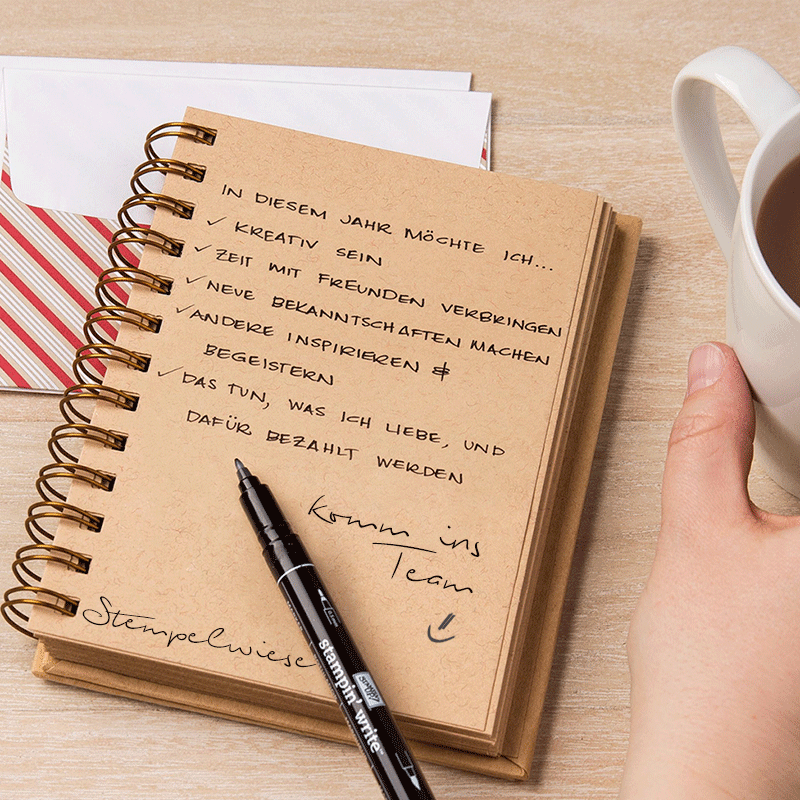 IN DIESEM JAHR MÖCHTE ICH...
✓ KREATIV SEIN
✓ ZEIT MIT FREUNDEN VERBRINGEN
✓ NEUE BEKANNTSCHAFTEN MACHEN
✓ ANDERE INSPIRIEREN &
BEGEISTERN
✓ DAS TUN, WAS ICH LIEBE, UND
DAFÜR BEZAHLT WERDEN
komm ins
Team
Stempelwiese
stampin' write™
STAMPIN' UP!